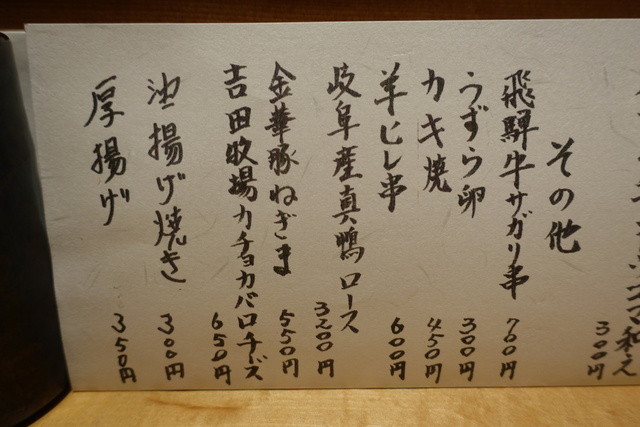 和え
300円
その他
飛騨牛サガリ串 700円
うずら卵 300円
カキ焼 450円
羊ヒレ串 600円
岐阜産真鴨ロース 3200円
金華豚ねぎま 550円
吉田牧場カチョカバロチーズ 650円
油揚げ焼き 300円
厚揚げ 350円